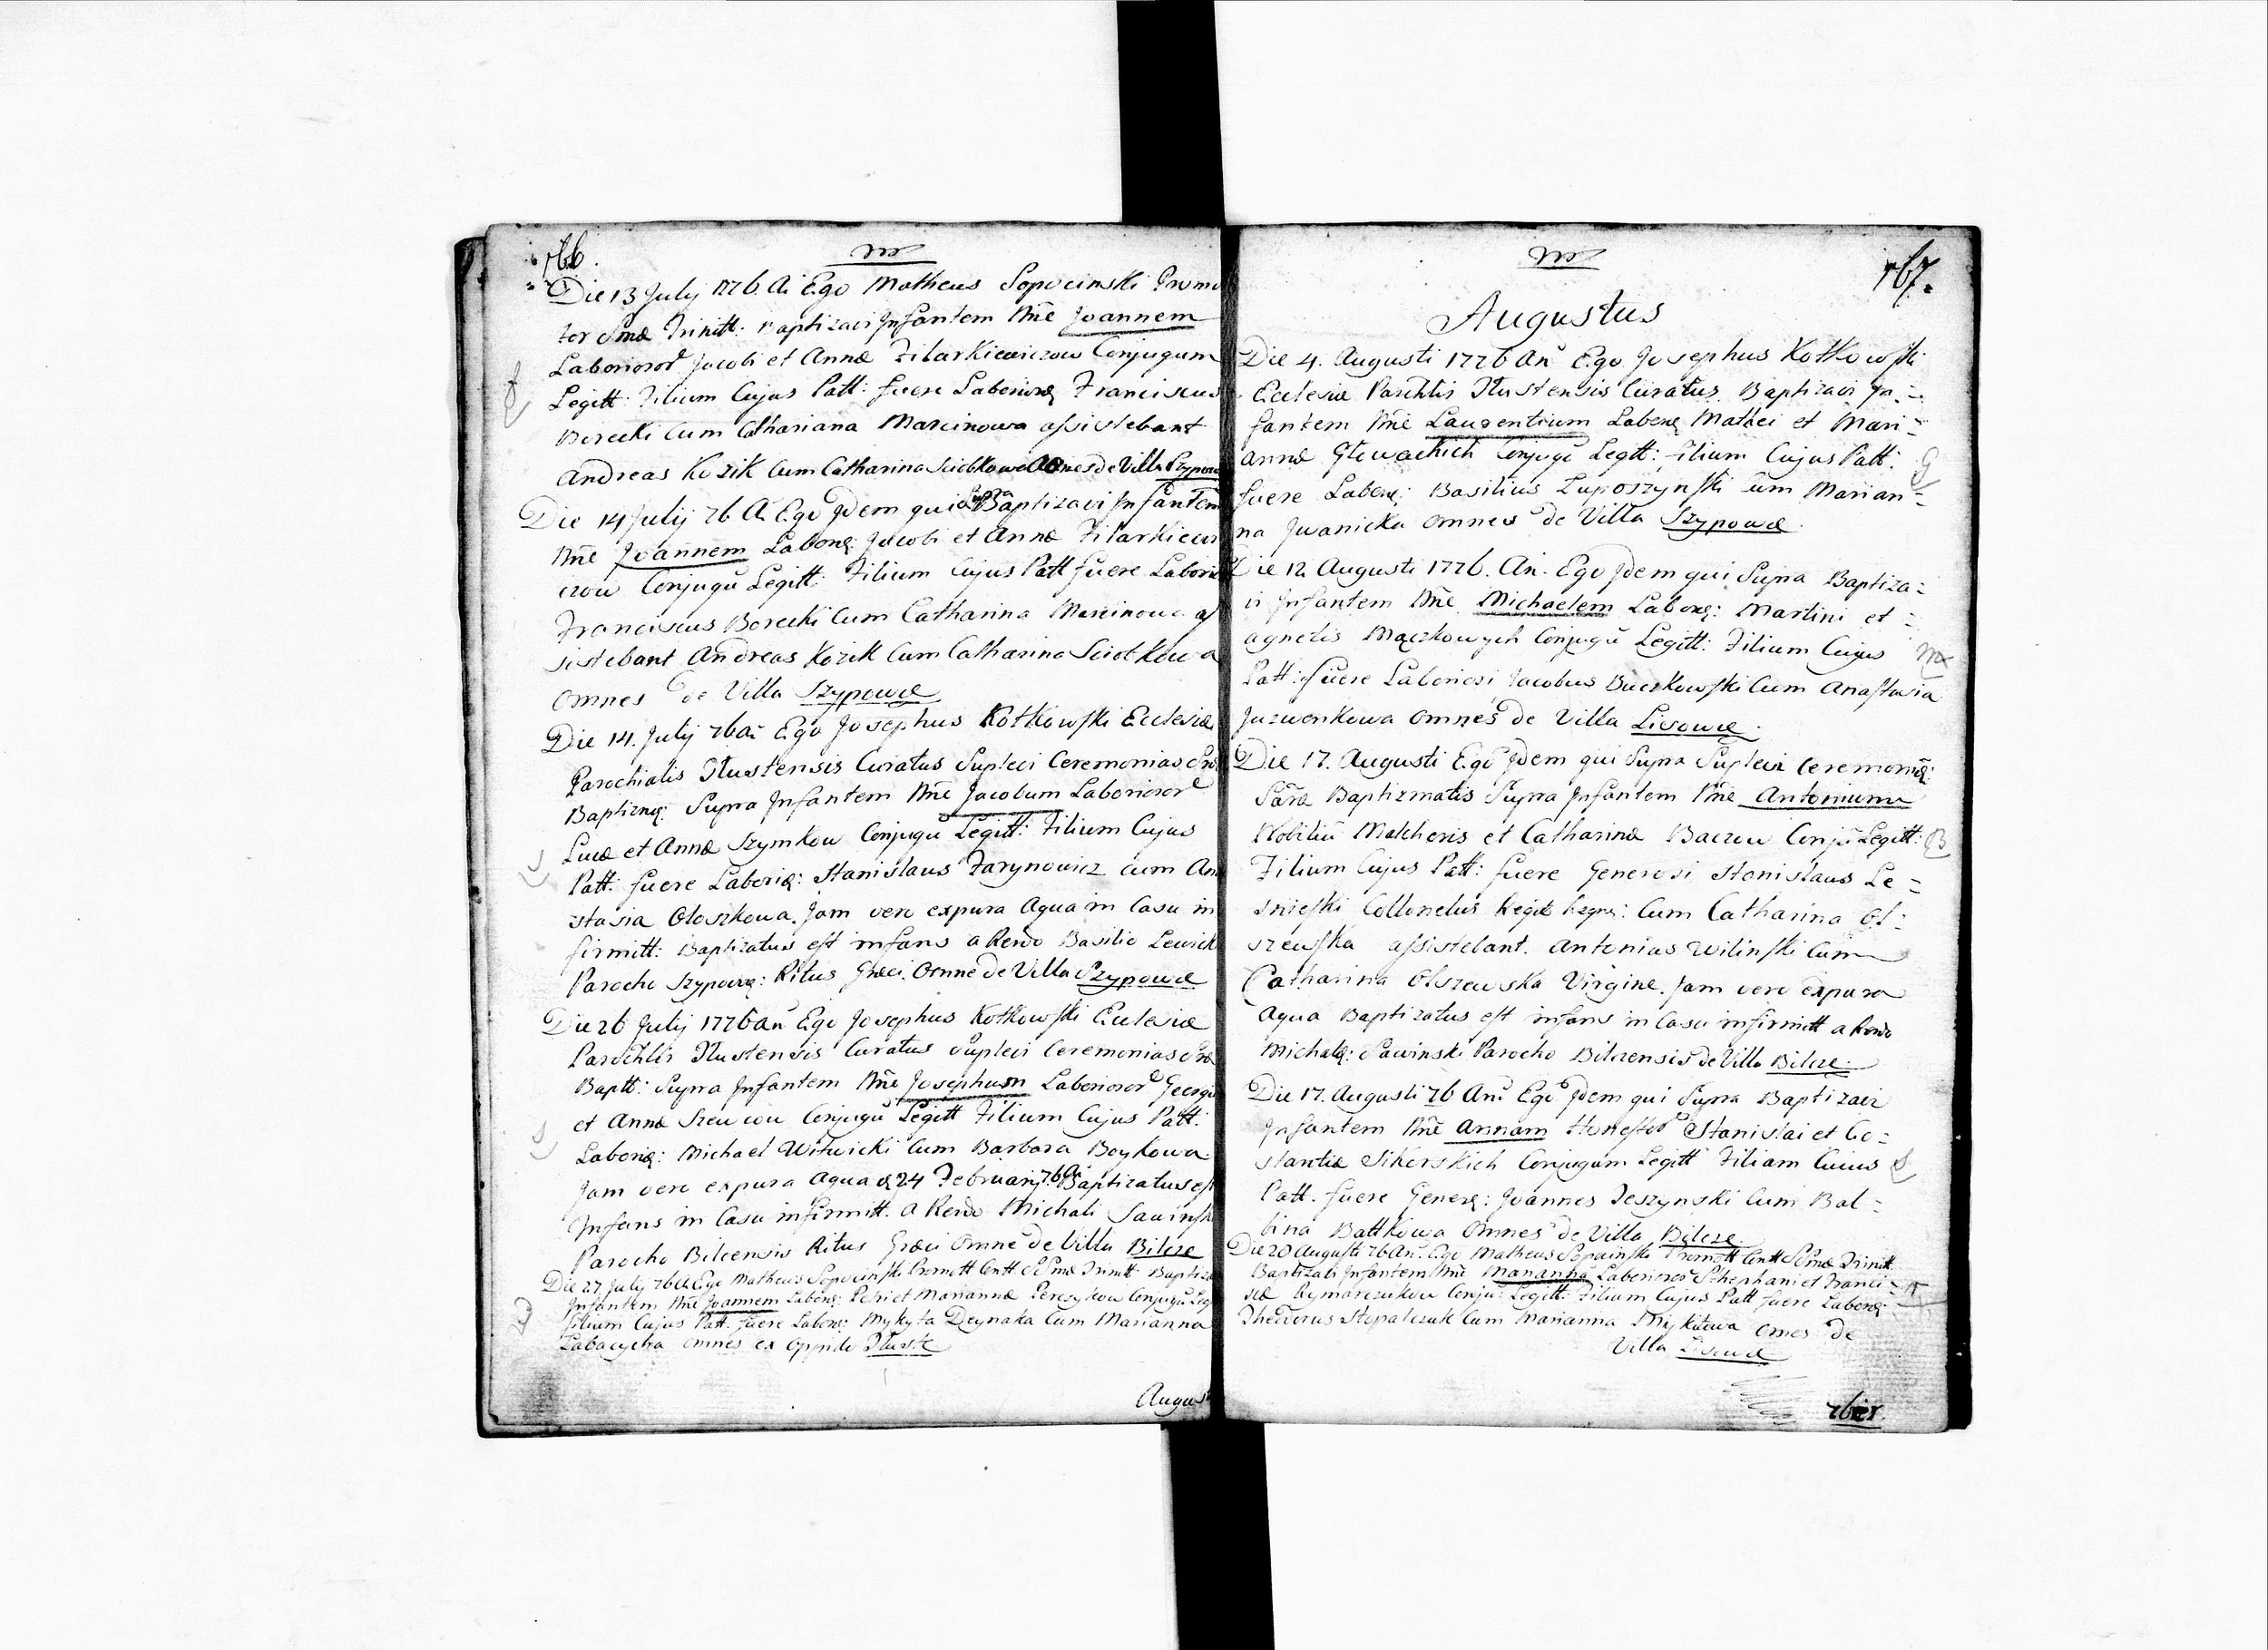 166.
Die 13 July 1776. A. Ego Matheus Sopocinski Promo
tor Smæ Trinitt: Baptizavi Infantem Nne Joannem
Laboriosor Jacobi et Annæ Filarkiewiczow Conjugum
Legitt: Filium Cujus Patt: fuere Laborios Franciscus
Borecki Cum Cathariana Marcinowa assistebant
Andreas Kozik Cum Catharina Sciotkowa Omnes de Villa Szypow
Die 14 July 76 A. Ego Idem qui Supra Baptizavi Infantem
Nne Joannem Labone: Jacobi et Annæ Filarkiew
iczow Conjugu Legitt: Filium Cujus Patt fuere Laborio
Franciscus Borecki Cum Catharina Marcinowa as
sistebant Andreas Kozik Cum Catharina Sciotkowa
Omnes de Villa Szypowæ
Die 14. July 76 A. Ego Josephus Kotkowski Ecclesiæ
Parochialis Tlustensis Curatus Suplevi Ceremonias
Baptizmq: Supra Infantem Nne Jacobum Laboriosor
Lucæ et Annæ Szymkow Conjugu Legitt: Filium Cujus
Patt: fuere Laborią: Stanislaus Farynowicz cum An
stasia Oloszkowa. Jam vero expura Aqua in Casu in
firmitt: Baptizatus est infans a Rendo Basilio Lewick
Parocho Szypowę: Ritus Græci. Omne de Villa Szypowæ
Die 26 July 1776 An Ego Josephus Kotkowski Ecclesiæ
Parochlis Tlustensis Curatus suplevi Ceremonias
Baptt: Supra Infantem Nne Josephum Laboriosor Georgii
et Annæ Szewcow Conjugu Legitt Filium Cujus Patt:
Laborią: Michael Witwicki Cum Barbara Boykowa
Jam vero expura aqua d 24 February 76 A Baptizatus est
Infans in Casu infirmitt. a Rendo Michali Sawinsk
Parocho Bilcensis Ritus Græci Omne de Villa Bilcze
Die 27 July 76 A Ego Matheus Sopocinski Promott Contt SSmæ Trinitt Baptiza
Infantem Nne Joannem Labonę: Petri et Mariannæ Conjugu Leg
filium Cujus Patt. fuere Labonę: Mykyta Deynaka Cum Marianna
omnes ex oppido Tluste
August
167.
Augustus
Die 4. Augusti 1776 An Ego Josephus Kotkowski
Ecclesiæ Parochlis Tlustensis Curatus Baptizavi In =
fantem Nne Laurentium Labonę Mathei et Mari =
annæ Głowachich Conjugu Legtt: filium Cujus Patt: G
fuere Labonę: Basilius Luposzynski Cum Marian =
na Iwanicka Omnes de Villa Szypowæ.
Die 12. Augusti 1776. An. Ego Idem qui Supra Baptiza =
vi Infantem Nne Michaelem Labonę: Martini et =
Agnetis Mączkowych Conjugu Legitt: Filium Cujus M
Patt: fuere Laboriosi Jacobus Buczkowski Cum Anastasia
Juzwenkowa Omnes de Villa Lisowæ.
Die 17. Augusti Ego Idem qui Supra Suplevi Ceremonią:
Baptizmatis Supra Infantem Nne Antonium
Nobiliu Malcheris et Catharinæ Baczow Conju Legitt: B
Filium Cujus Patt: fuere Generosi Stanislaus Le =
snieski Collonelus Regiæ Cum Catharina Ol =
szewska assistebant. Antonius Wilinski Cum
Catharina Olszewska Virgine. Jam vero expura
Aqua Baptizatus est infans in Casu infirmitt a Rendo
Michalą: Sawinski Parocho Bilczensis de Villa Bilcze.
Die 17. Augusti 76 An. Ego Idem qui Supra Baptizavi
Infantem Nne Annam Honestor Stanislai et Co =
stantiæ Sikorskich Conjugum Legitt Filiam Cuius S
Patt. fuere Generą: Joannes Jeszynski Cum Bal =
bina Battkowa Omnes de Villa Bilcze.
Die 20 Augusti 76 An. Ego Matheus Sopocinski Promott Contt SSmæ Trinitt
Baptizavi Infantem Nne Marianna Laboriosor Sthephani et Franci =
scæ Rymarczukow Conju: Legitt: Filiam Cujus Patt fuere Labonę:
Theodorus Stepalczuk Cum Marianna Mykitowa Omes de
Villa Lisowæ
7bier